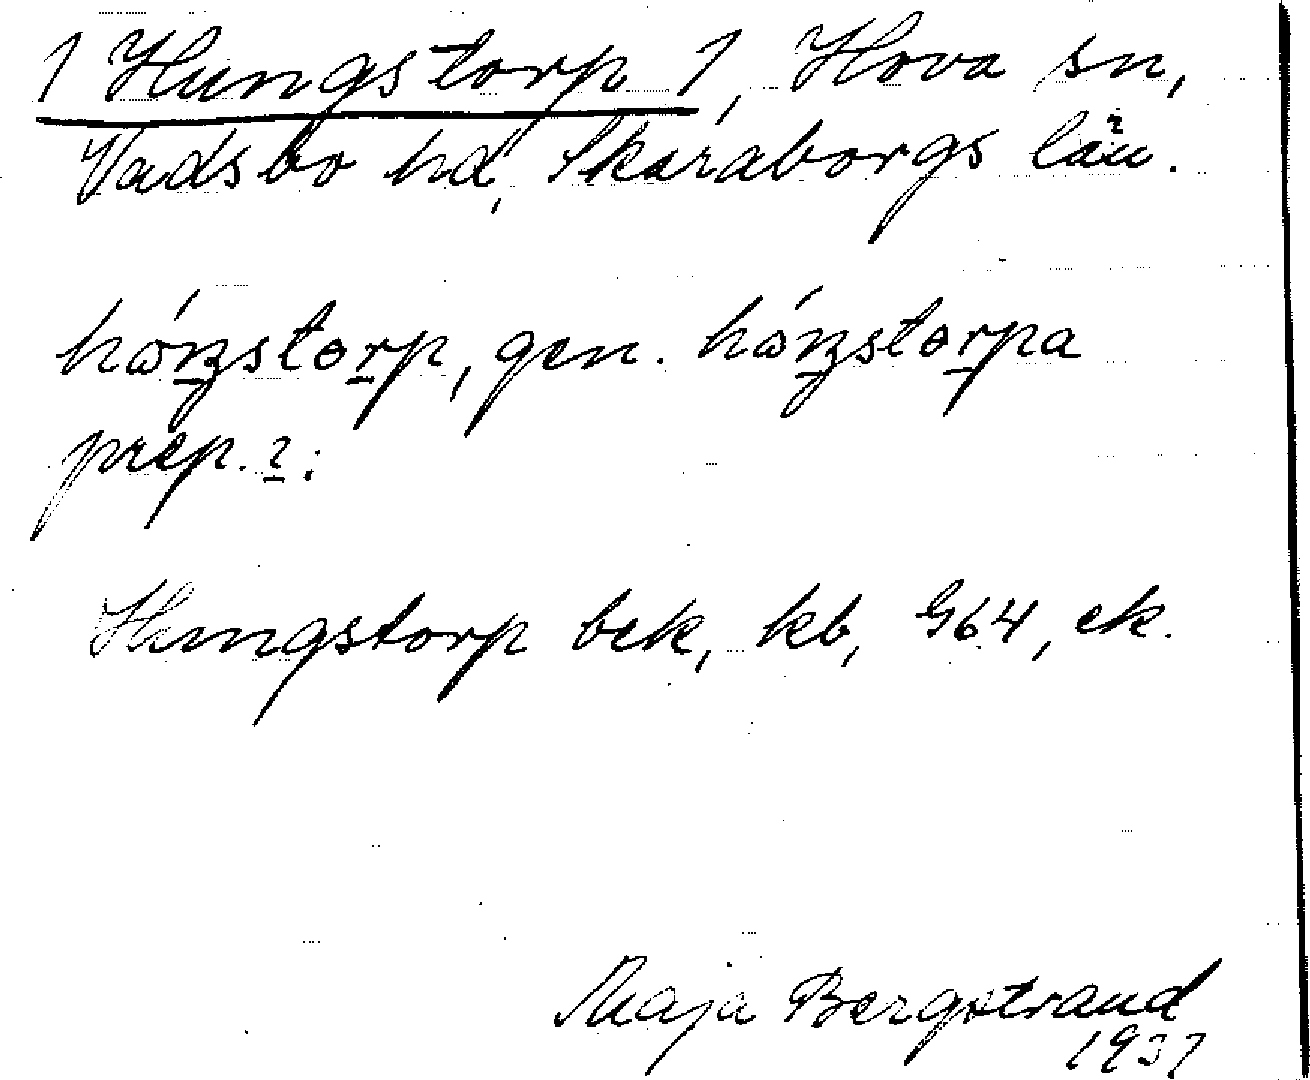 1 Hungstorp 1, Hova sn,
Vadsbo hd, Skaraborgs län.
hóŋstorp, gen. hóŋstorpa
prep. ı:
Hungstorp bek, kb, G64, ek.
Maja Bergstrand
1937